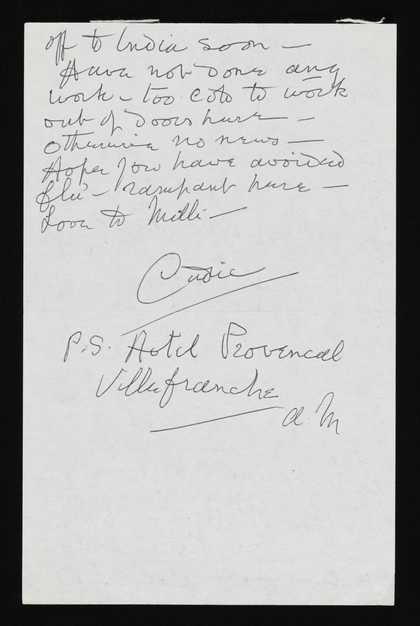 off to India soon –
Have not done any
work – too cold to work
out of doors here –
otherwise no news –
Hope you have avoided
flu – rampant here –
Love to Milli –
P.S. Hotel Provencal
Villefranche
a M